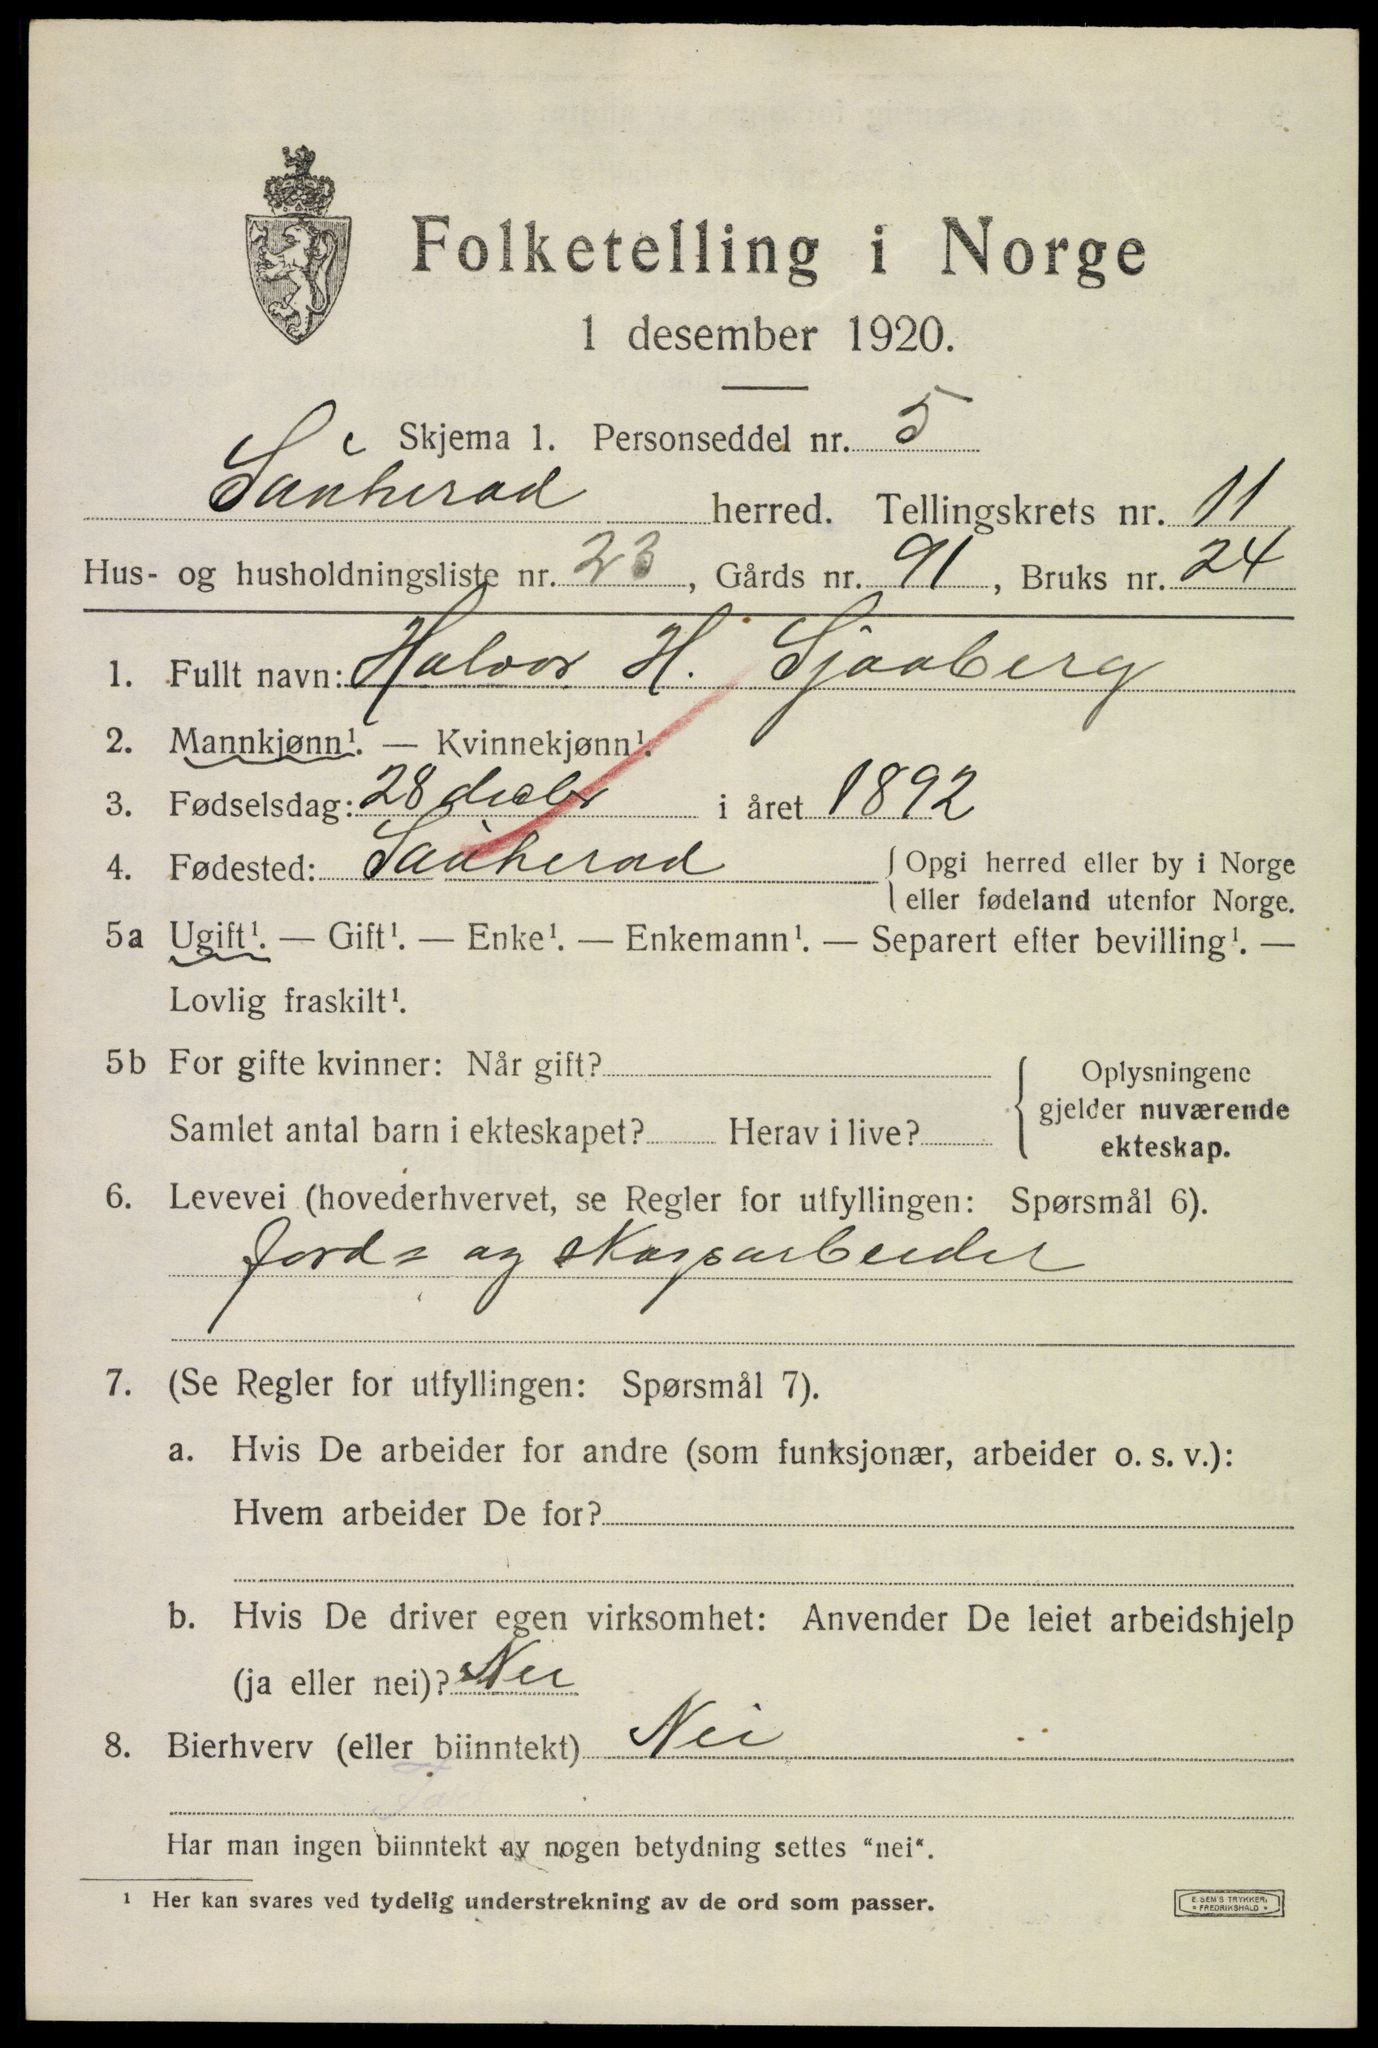 Folketelling i Norge
1 desember 1920.
Skjema 1. Personseddel nr. 5
Sauherad herred. Tellingskrets nr. 11
Hus- og husholdningsliste nr. 23, Gårds nr. 91, Bruks nr. 24
1. Fullt navn: Halvor H. Sjaaberg
2. Mannkjønn¹. — Kvinnekjønn¹.
3. Fødselsdag: 28 decbr i året 1892
4. Fødested: Sauherad { Opgi herred eller by i Norge
eller fødeland utenfor Norge.
5a Ugift¹. — Gift¹. — Enke¹. — Enkemann¹. — Separert efter bevilling¹. —
Lovlig fraskilt¹.
5b For gifte kvinner: Når gift?
Samlet antal barn i ekteskapet? Herav i live?
Oplysningene
gjelder nuværende
ekteskap.
6. Levevei (hovederhvervet, se Regler for utfyllingen: Spørsmål 6).
Jord= og skogsarbeider
7. (Se Regler for utfyllingen: Spørsmål 7).
a. Hvis De arbeider for andre (som funksjonær, arbeider o. s. v.):
Hvem arbeider De for?
b. Hvis De driver egen virksomhet: Anvender De leiet arbeidshjelp
(ja eller nei)? Nei
8. Bierhverv (eller biinntekt) Nei
Har man ingen biinntekt av nogen betydning settes "nei".
¹ Her kan svares ved tydelig understrekning av de ord som passer.
E. SEM'S TRYKKERI
* FREDRIKSHALD *